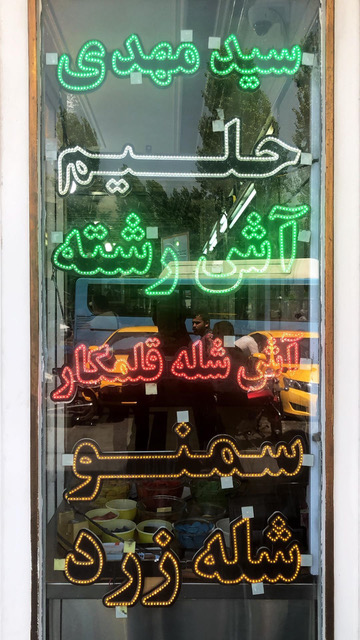 سید مهدی
حلیم
آش رشته
آش شله قلمکار
سمنو
شله زرد